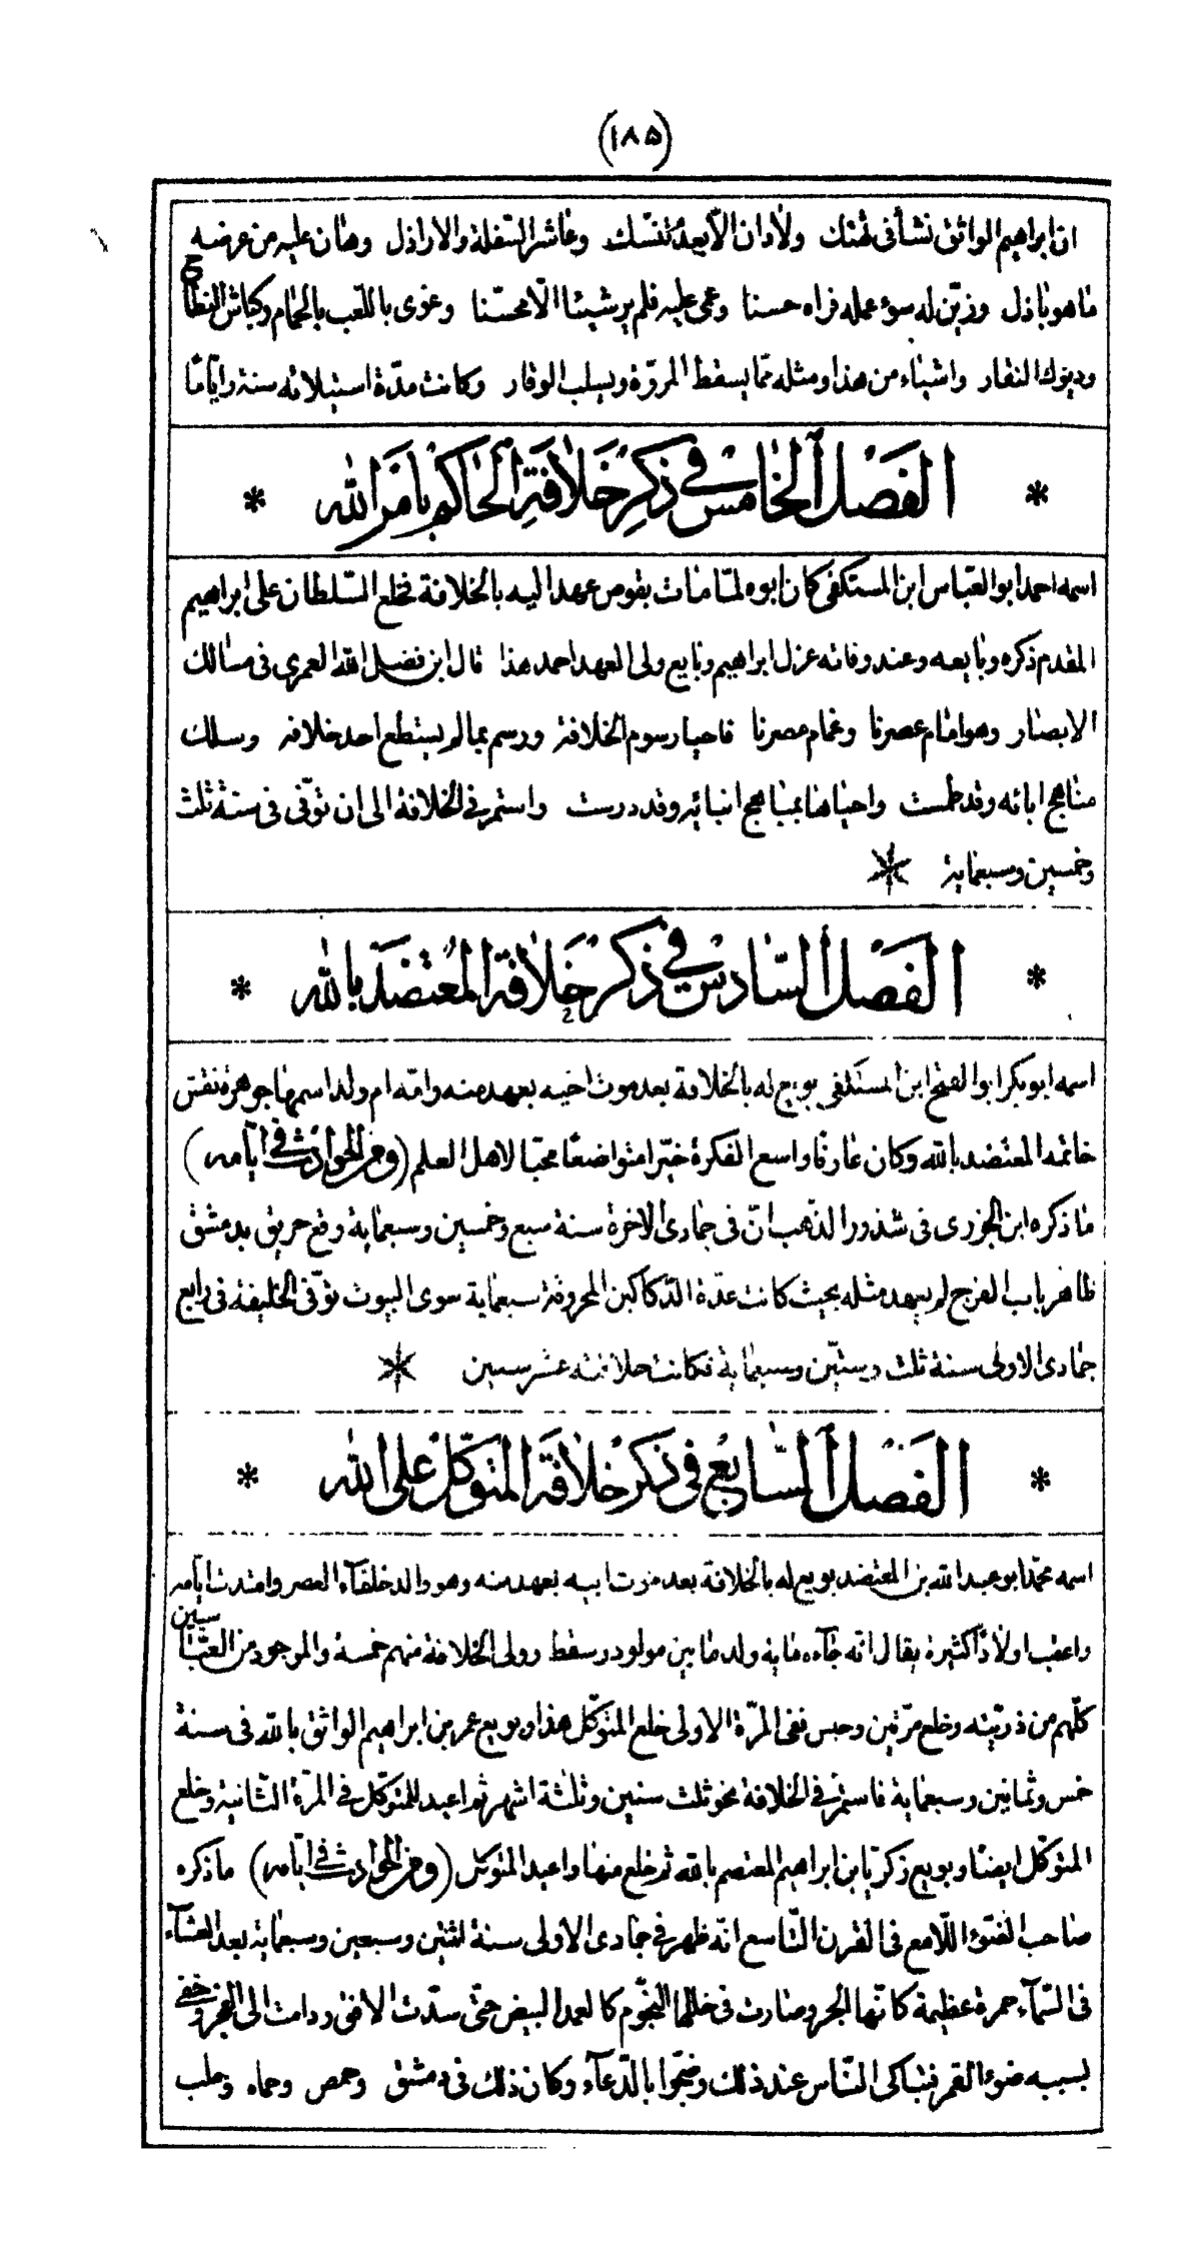 (١٨٥)
ان ابراهيم الواثق نشأ فى تهتك ولا دان الا بعد تنسك وعاشر السفلة والاراذل وهان عليه من عرضه
ما هو باذل وزين له سوء عمله فراه حسنا وعمى عليه فلم ير شيئا الا محسنا وغوى باللعب بالحمام وكباش النطاح
وديوك النقار واشياء من هذا ومثله مما يسقط المروة ويسلب الوقار وكانت مدة استيلائه سنة واياما
* الفصل الخامس فى ذكر خلافة الحاكم بامر الله *
اسمه احمد ابو العباس ابن المستكفى كان ابوه لما مات بقوص عهد اليه بالخلافة فخلع السلطان على ابراهيم
المقدم ذكره وبايعه وعند وفاته عزل ابراهيم وبايع ولى العهد احمد هذا قال ابن فضل الله العمرى فى مسالك
الابصار وهو امام عصرنا وغمام مصرنا فاحيا رسوم الخلافة ورسم بما لم يستطع احد خلافه وسلك
مناهج ابائه وقد طمست واحياها بمباهج انبائه وقد درست واستمر فى الخلافة الى ان توفى فى سنة ثلث
وخمسين وسبعماية *
* الفصل السادس فى ذكر خلافة المعتضد بالله *
اسمه ابو بكر ابو الفتح ابن المستكفى بويع له بالخلافة بعد موت اخيه بعهد منه وامه ام ولد اسمها جوهرة نقش
خاتمه المعتضد بالله وكان عارفا واسع الفكرة خيرا متواضعا محبا لاهل العلم (ومن الحوادث فى ايامه)
ما ذكره ابن الجزرى فى شذور الذهب ان فى جمادى الاخرة سنة سبع وخمسين وسبعماية وقع حريق بدمشق
ظاهر باب الفرج لم يعهد مثله بحيث كانت عدة الدكاكين المحروقة سبعماية سوى البيوت توفى الخليفة فى رابع
جمادى الاولى سنة ثلث وستين وسبعماية فكانت خلافته عشر سنين *
* الفصل السابع فى ذكر خلافة المتوكل على الله *
اسمه محمد ابو عبد الله بن المعتضد بويع له بالخلافة بعد موت ابيه بعهد منه وهو والد خلفآء العصر وامتدت ايامه
واعقب اولادا كثيرة يقال انه جآءه ماية ولد ما بين مولود وسقط وولى الخلافة منهم خمسة والموجود من العباسيين
كلهم من ذريته وخلع مرتين وحبس ففى المرة الاولى خلع المتوكل هذا وبويع عمر بن ابراهيم الواثق بالله فى سنة
خمس وثمانين وسبعماية فاستمر فى الخلافة نحو ثلث سنين وثلثة اشهر ثم اعيد للمتوكل فى المرة الثانية وخلع
المتوكل ايضا وبويع زكريا بن ابراهيم المعتصم بالله ثم خلع منها واعيد المتوكل (ومن الحوادث فى ايامه) ما ذكره
صاحب الضوء اللامع فى القرن التاسع انه ظهر فى جمادى الاولى سنة اثنين وسبعين وسبعماية بعد العشآء
فى السمآء حمرة عظيمة كانها الجمر وصارت فى خللها النجوم كالعمد البيض حتى سدت الافق ودامت الى الفجر وخفى
بسببه ضوء القمر فتباكى الناس عند ذلك وضجوا بالدعآء وكان ذلك فى دمشق وحمص وحماه وحلب